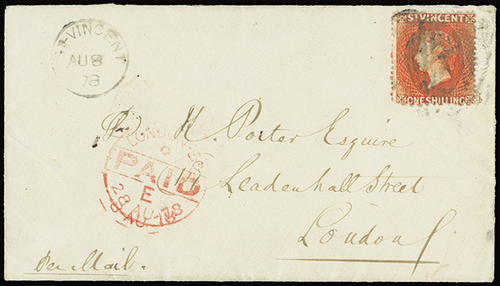 ST VINCENT
AU 8
78
ST VINCENT
ONE SHILLING
LONDON
PAID
E
28 AU 78
D. K. Porter Esquire
Leadenhall Street
London
Per Mail.